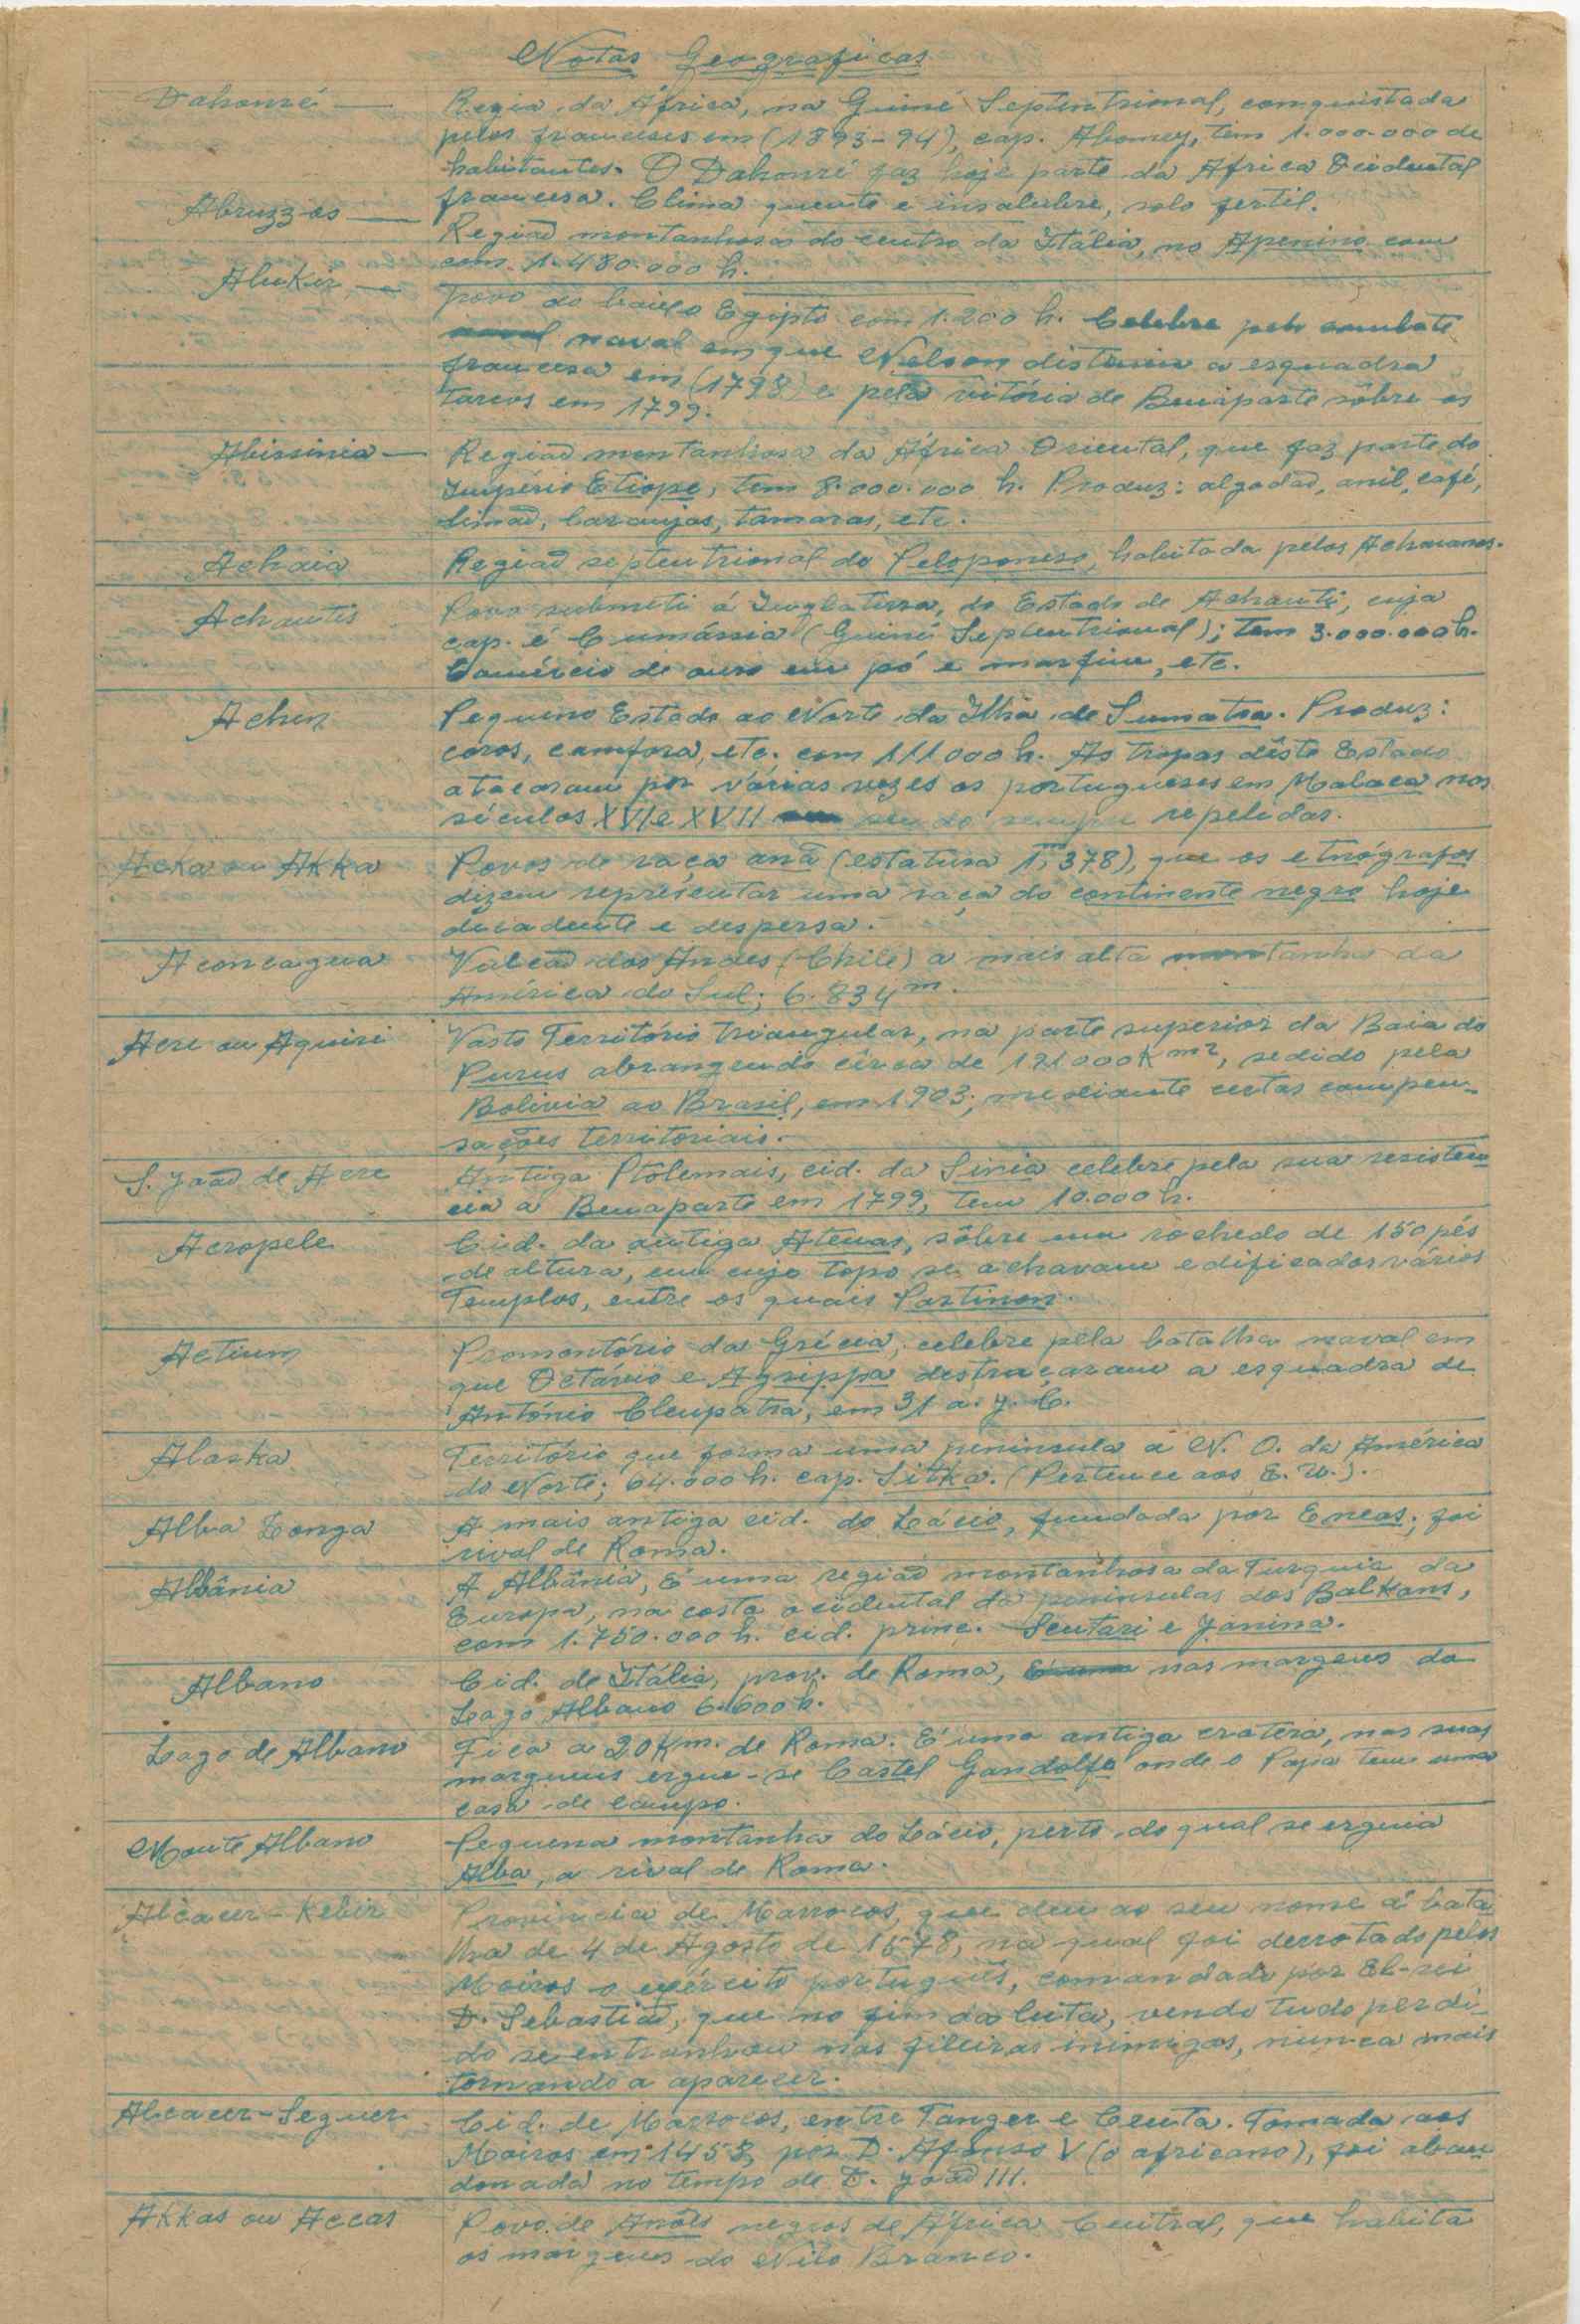 Notas Geograficas
Dahomé — Regia da África, na Guiné Septentrional, conquistada
pelos franceses em (1893-94), cap. Abomey, tem 1.000.000 de
habitantes. O Dahomé faz hoje parte da Africa Ocidental
francesa. Clima quente e insalubre, solo fertil.
Abruzzos — Região montanhosa do centro da Itália, no Apenino com
com 1.480.000 h.
Abukir — povo do baixo Egipto com 1.200 h. Celebre pelo combate
naval em que Nelson distruiu a esquadra
francesa em (1798) e pela vitória de Bunaparte sôbre os
Turcos em 1799.
Abissinia — Região montanhosa da África Oriental, que faz parte do
Império Etiope, tem 8.000.000 h. Produz: algodão, anil, café,
limão, laranjas, tamaras, etc.
Achaia Região septentrional do Peloponeso, habitada pelos Achaianos.
Achantis Povo submeti á Inglaterra, do Estado de Achanti, cuja
cap. é Cumássia (Guiné Septentrional); tem 3.000.000 h.
Comércio de ouro em pó e marfim, etc.
Achen Pequeno Estado ao Norte da Ilha de Sumatra. Produz:
côcos, camfora, etc. com 111000 h. As tropas dêste Estado
atacaram por várias vezes os portugueses em Malaca nos
séculos XVI e XVII sendo sempre repelidas.
Acka ou Akka Povos de raça anã (estatura 1,378), que os etnógrafos
dizem representar uma raça do continente negro hoje
decadente e despersa.
Aconcagua Vulcão dos Andes (Chile) a mais alta montanha da
América do Sul; 6.834 m.
Acre ou Aquiri Vasto Território triangular, na parte superior da Baia do
Purus abrangendo cêrca de 191000 Km2, sedido pela
Bolivia ao Brasil, em 1903; mediante certas compen-
sações territoriais.
S. João de Acre Antiga Ptolemais, cid. da Siria celebre pela sua resisten
cia a Bunaparte em 1799, tem 10.000 h.
Acropele Cid. da antiga Atenas, sôbre um rochedo de 150 pés
de altura, em cujo topo se achavam edificados vários
Templos, entre os quais Partinon.
Actium Promontório da Grécia, celebre pela batalha naval em
que Octávio e Agrippa destraçaram a esquadra de
António Cleupatra, em 31 a. J. C.
Alaska Território que forma uma peninsula a N. O. da América
do Norte; 64.000 h. cap. Sitka. (Pertence aos E. U.).
Alba Longa A mais antiga cid. do Lácio, fundada por Eneas; foi
rival de Roma.
Albânia A Albânia, É uma região montanhosa da Turquia da
Europa, na costa ocidental da peninsulas dos Balkans,
com 1.750.000 h. cid. princ. Scutari e Janina.
Albano Cid. de Itália, prov. de Roma, nas margens do
Lago Albano 6.600 h.
Lago de Albano Fica a 20 Km. de Roma. É uma antiga cratera, nas suas
margens ergue-se Castel Gandolfo onde o Papa tem uma
casa de campo.
Monte Albano Pequena montanha do Lácio, perto do qual se erguia
Alba, a rival de Roma.
Alcacer-Kebir Provincia de Marrocos, que deu ao seu nome á bata
lha de 4 de Agosto de 1578, na qual foi derrotado pelos
Moiros o exército português, comandado por El-rei
D. Sebastião, que no fim da luta, vendo tudo perdi
do se entranhou nas fileiras inimigas, nunca mais
tornando a aparecer.
Alcacer-Seguer Cid. de Marrocos, entre Tanger e Ceuta. Tomada aos
Moiros em 1458 por D. Afonso V (o africano), foi aban
donada no tempo de D. João III.
Akkas ou Accas Povo de Anões negros de África Central, que habita
as margens do Nilo Branco.